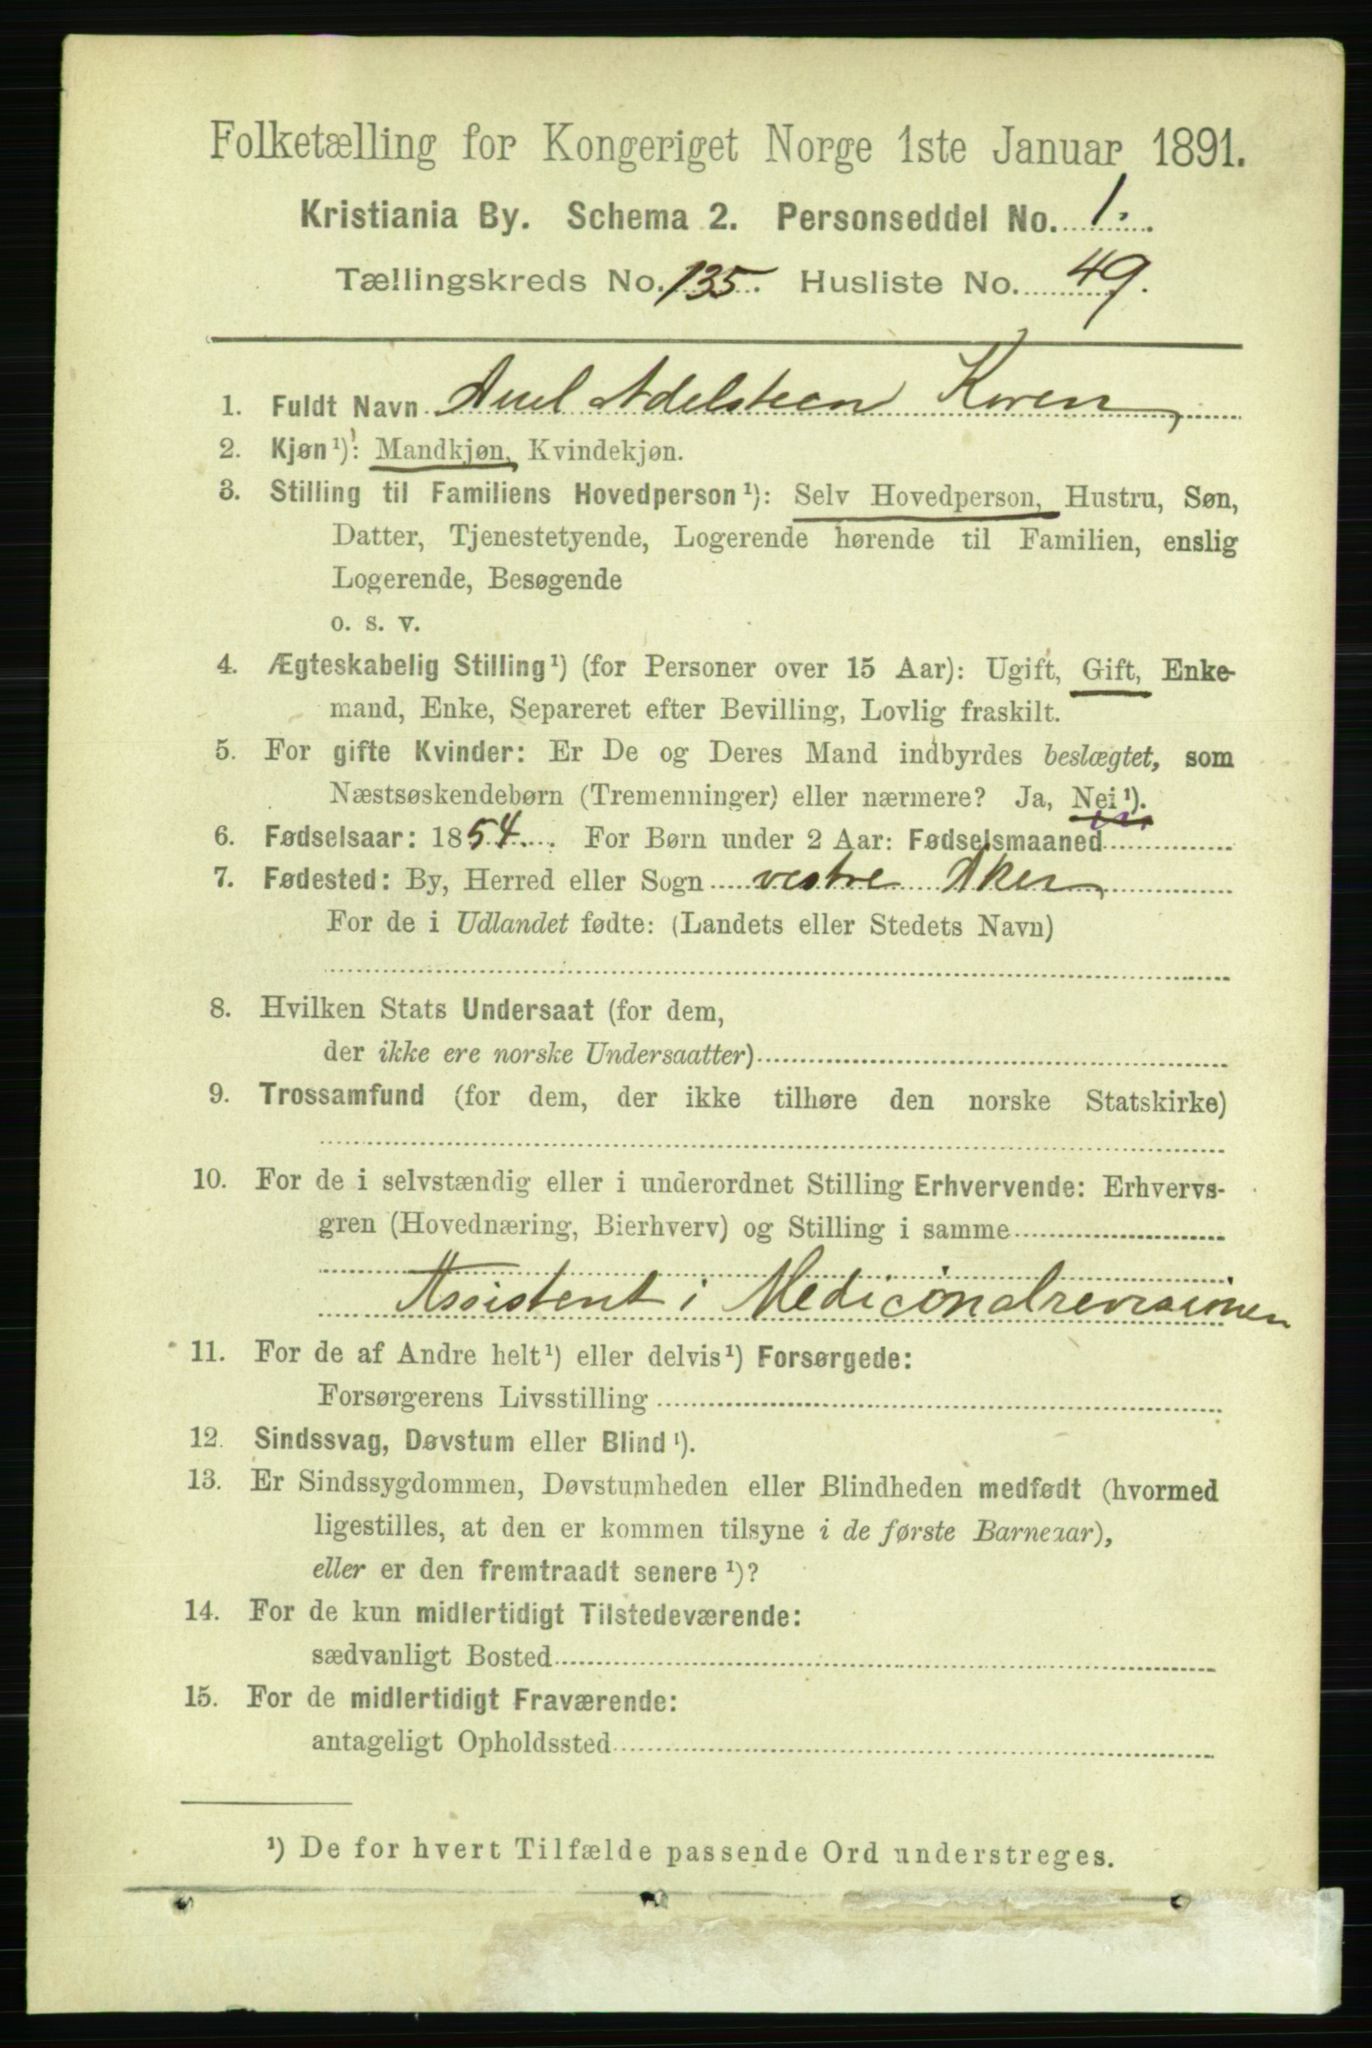 Folketælling for Kongeriget Norge 1ste Januar 1891.
Kristiania By. Schema 2. Personseddel No. 1.
Tællingskreds No. 135. Husliste No. 49.
1. Fuldt Navn Axel Adelsteen Koren,
2. Kjøn¹): Mandkjøn, Kvindekjøn.
3. Stilling til Familiens Hovedperson¹): Selv Hovedperson, Hustru, Søn,
Datter, Tjenestetyende, Logerende hørende til Familien, enslig
Logerende, Besøgende
o. s. v.
4. Ægteskabelig Stilling¹) (for Personer over 15 Aar): Ugift, Gift, Enke-
mand, Enke, Separeret efter Bevilling, Lovlig fraskilt.
5. For gifte Kvinder: Er De og Deres Mand indbyrdes beslægtet, som
Næstsøskendebørn (Tremenninger) eller nærmere? Ja, Nei¹).
6. Fødselsaar: 1854. For Børn under 2 Aar: Fødselsmaaned
7. Fødested: By, Herred eller Sogn vestre Aker,
For de i Udlandet fødte: (Landets eller Stedets Navn)
8. Hvilken Stats Undersaat (for dem,
der ikke ere norske Undersaatter)
9. Trossamfund (for dem, der ikke tilhøre den norske Statskirke)
10. For de i selvstændig eller i underordnet Stilling Erhvervende: Erhvervs-
gren (Hovednæring, Bierhverv) og Stilling i samme
Assistent i Medicinalrevisionen
11. For de af Andre helt¹) eller delvis¹) Forsørgede:
Forsørgerens Livsstilling
12. Sindssvag, Døvstum eller Blind¹).
13. Er Sindssygdommen, Døvstumheden eller Blindheden medfødt (hvormed
ligestilles, at den er kommen tilsyne i de første Barneaar),
eller er den fremtraadt senere¹)?
14. For de kun midlertidigt Tilstedeværende:
sædvanligt Bosted
15. For de midlertidigt Fraværende:
antageligt Opholdssted
¹) De for hvert Tilfælde passende Ord understreges.